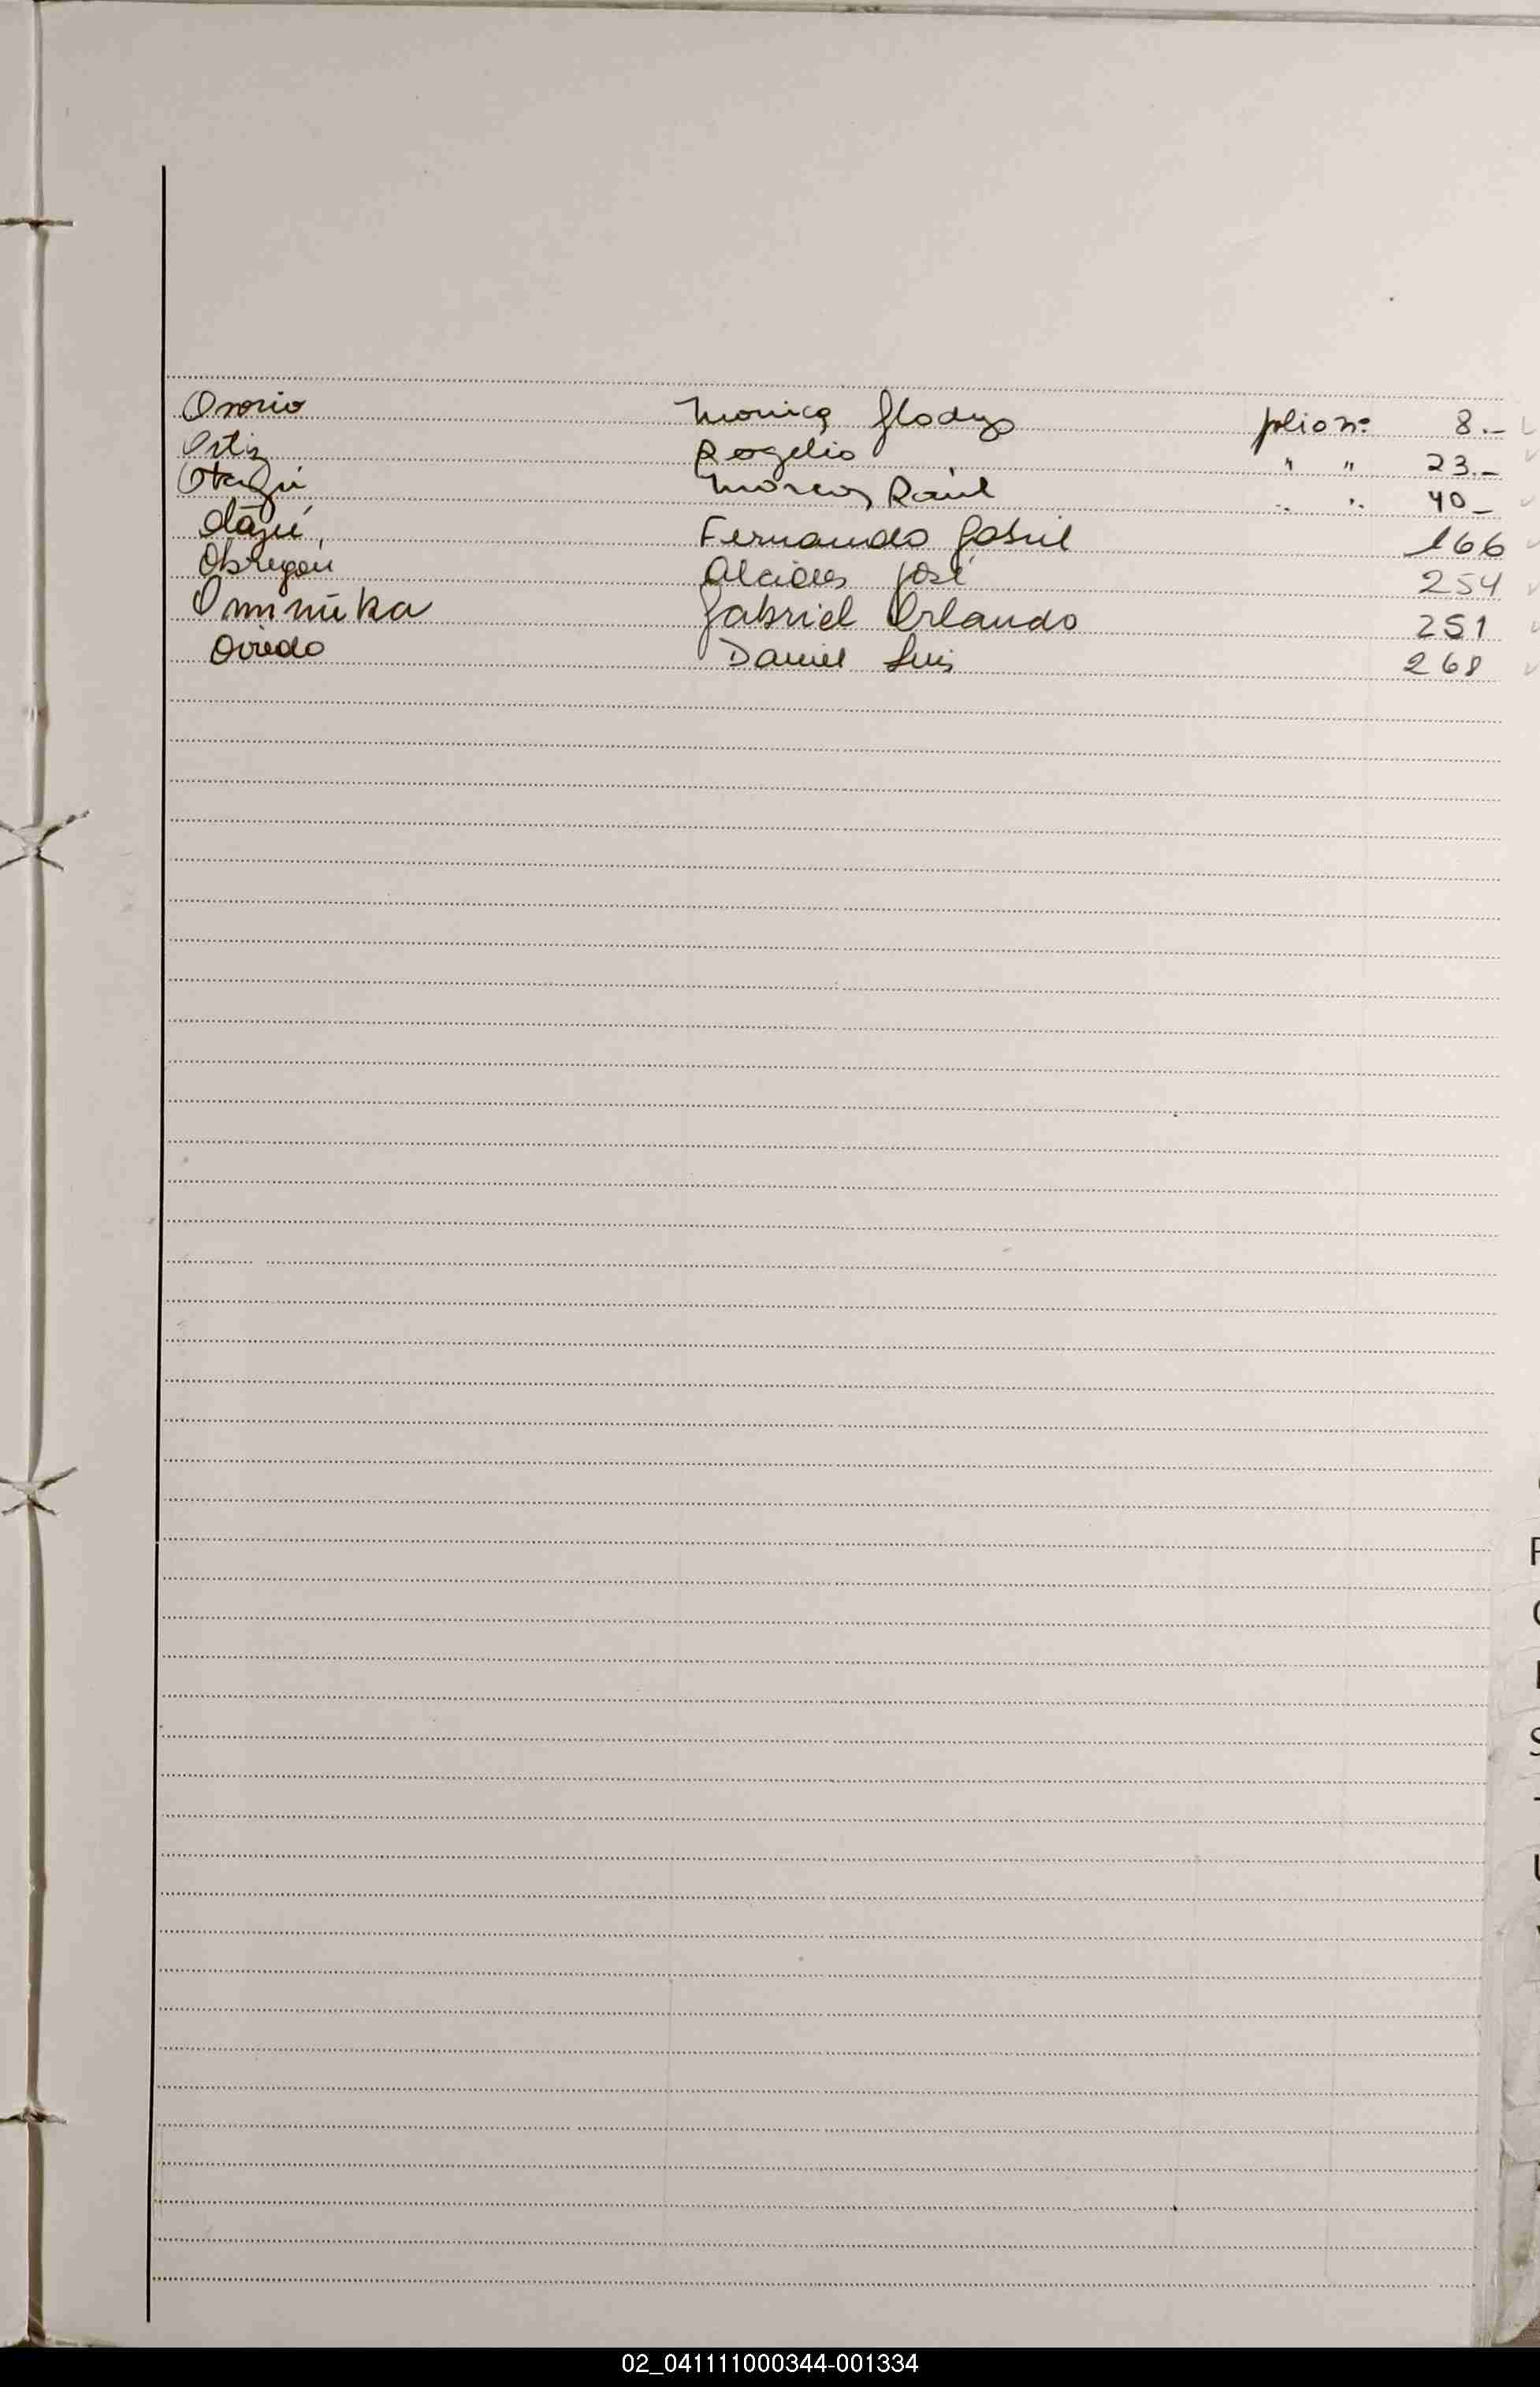 Osorio Monica Gladys folio nº 8.-
Ortiz Rogelio " " 23.-
Otazú Marcos Raúl " " 40-
Otazú, Fernando Gabriel 166
Obregón Alcides José 254
Gabriel Orlando 251
Oviedo Daniel Luis 268
P
S
U
02_041111000344-001334